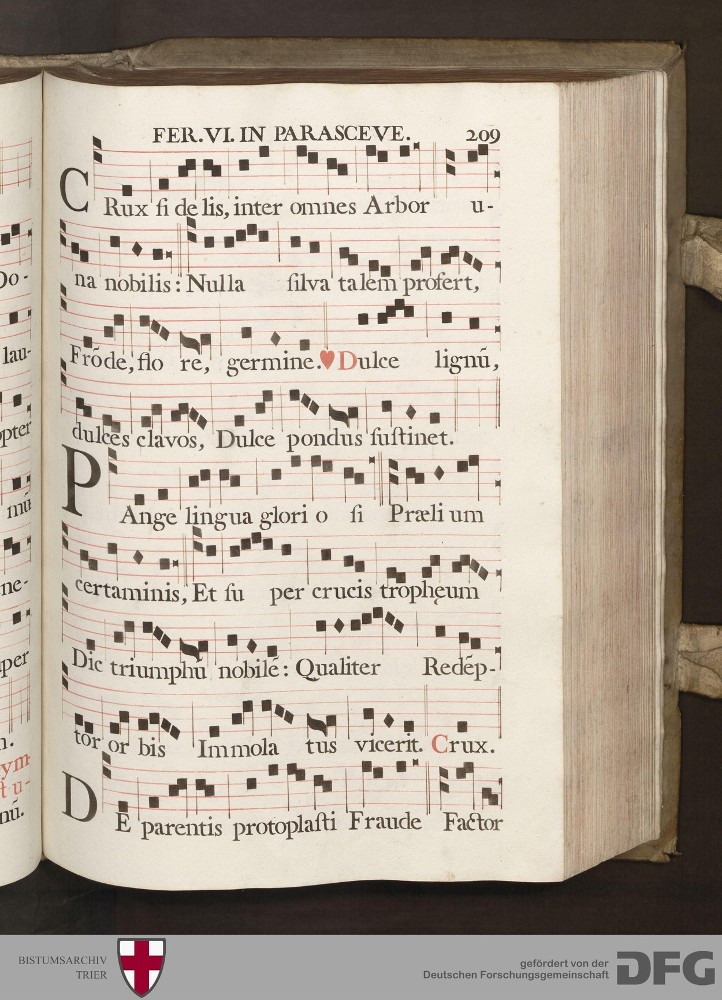 FER. VI. IN PARASCEVE. 209
CRux fi de lis, inter omnes Arbor u-
na nobilis: Nulla ſilva talem profert,
Frōde, flo re, germine. ♥ Dulce lignū,
dulces clavos, Dulce pondus ſuſtinet.
PAnge lingua glori o ſi Prælium
certaminis, Et ſu per crucis trophęum
Dic triumphū nobilē: Qualiter Redēp-
tor or bis Immola tus vicerit. Crux.
DE parentis protoplaſti Fraude Factor
Do-
lau-
opter
mū
ne-
per
ym-
tu-
nū.
BISTUMSARCHIV
TRIER
gefördert von der
Deutschen Forschungsgemeinschaft
DFG